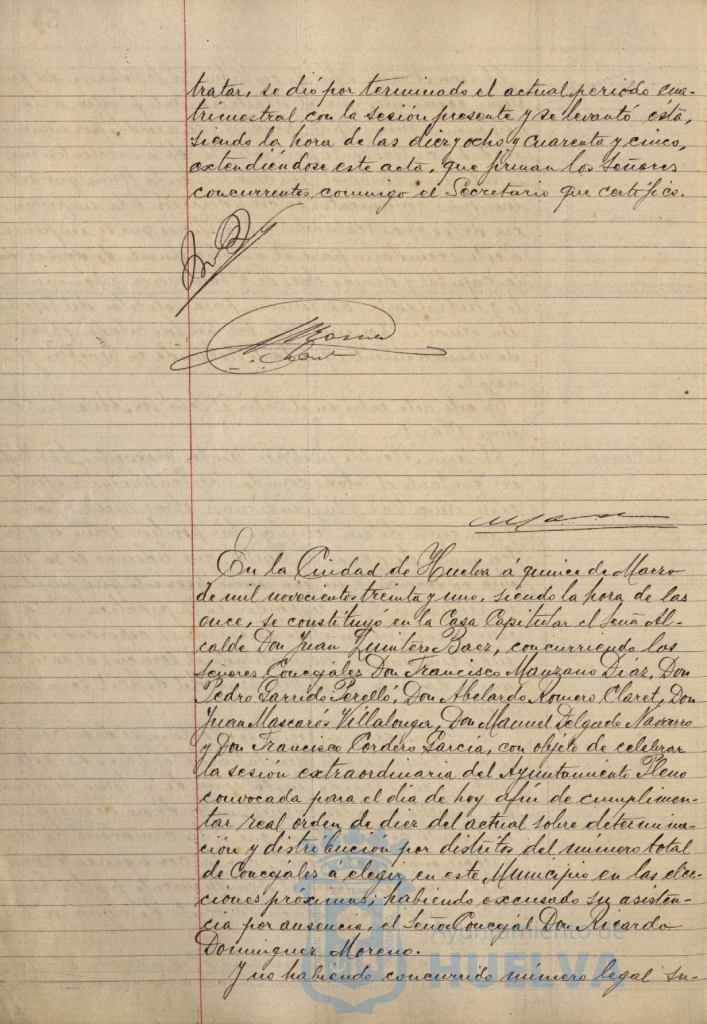 tratar, se dió por terminado el actual periodo cua-
trimestral con la sesión presente y se levantó ésta,
siendo la hora de las diez y ocho y cuarenta y cinco,
extendiéndose este acta, que firman los Señores
concurrentes conmigo el Secretario que certifico.
En la Ciudad de Huelva á quince de Marzo
de mil novecientos treinta y uno, siendo la hora de las
once, se constituyó en la Casa Capitular el Señor Al-
calde Don Juan Quintero Baez, concurriendo los
Señores Concejales Don Francisco Manzano Díaz, Don
Pedro Garrido Perelló, Don Abelardo Romero Claret, Don
Juan Mascarós Villalonga, Don Manuel Delgado Navarro
y Don Francisco Cordero García, con objeto de celebrar
la sesión extraordinaria del Ayuntamiento Pleno
convocada para el día de hoy afín de cumplimen-
tar real orden de diez del actual sobre determina-
ción y distribución por distritos del número total
de Concejales á elegir en este Municipio en las elec-
ciones próximas; habiendo excusado su asisten-
cia por ausencia, el Señor Concejal Don Ricardo
Dominguez Moreno.
Ayuntamiento de
HUELVA
Y no habiendo concurrido número legal su-